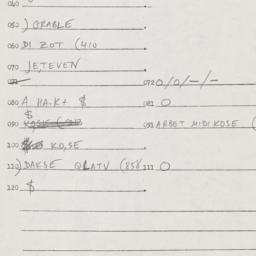 040
050 ) GRABLE
060 DI ZOT (410
070 JETEVEN
072 0/0/-/-
080 A HA.K+ $ 081 0
090 $ 091 ARBET MIDI KOSE (
100 KO,SE
110) DAKSE QLATV (858 111 0
120 $